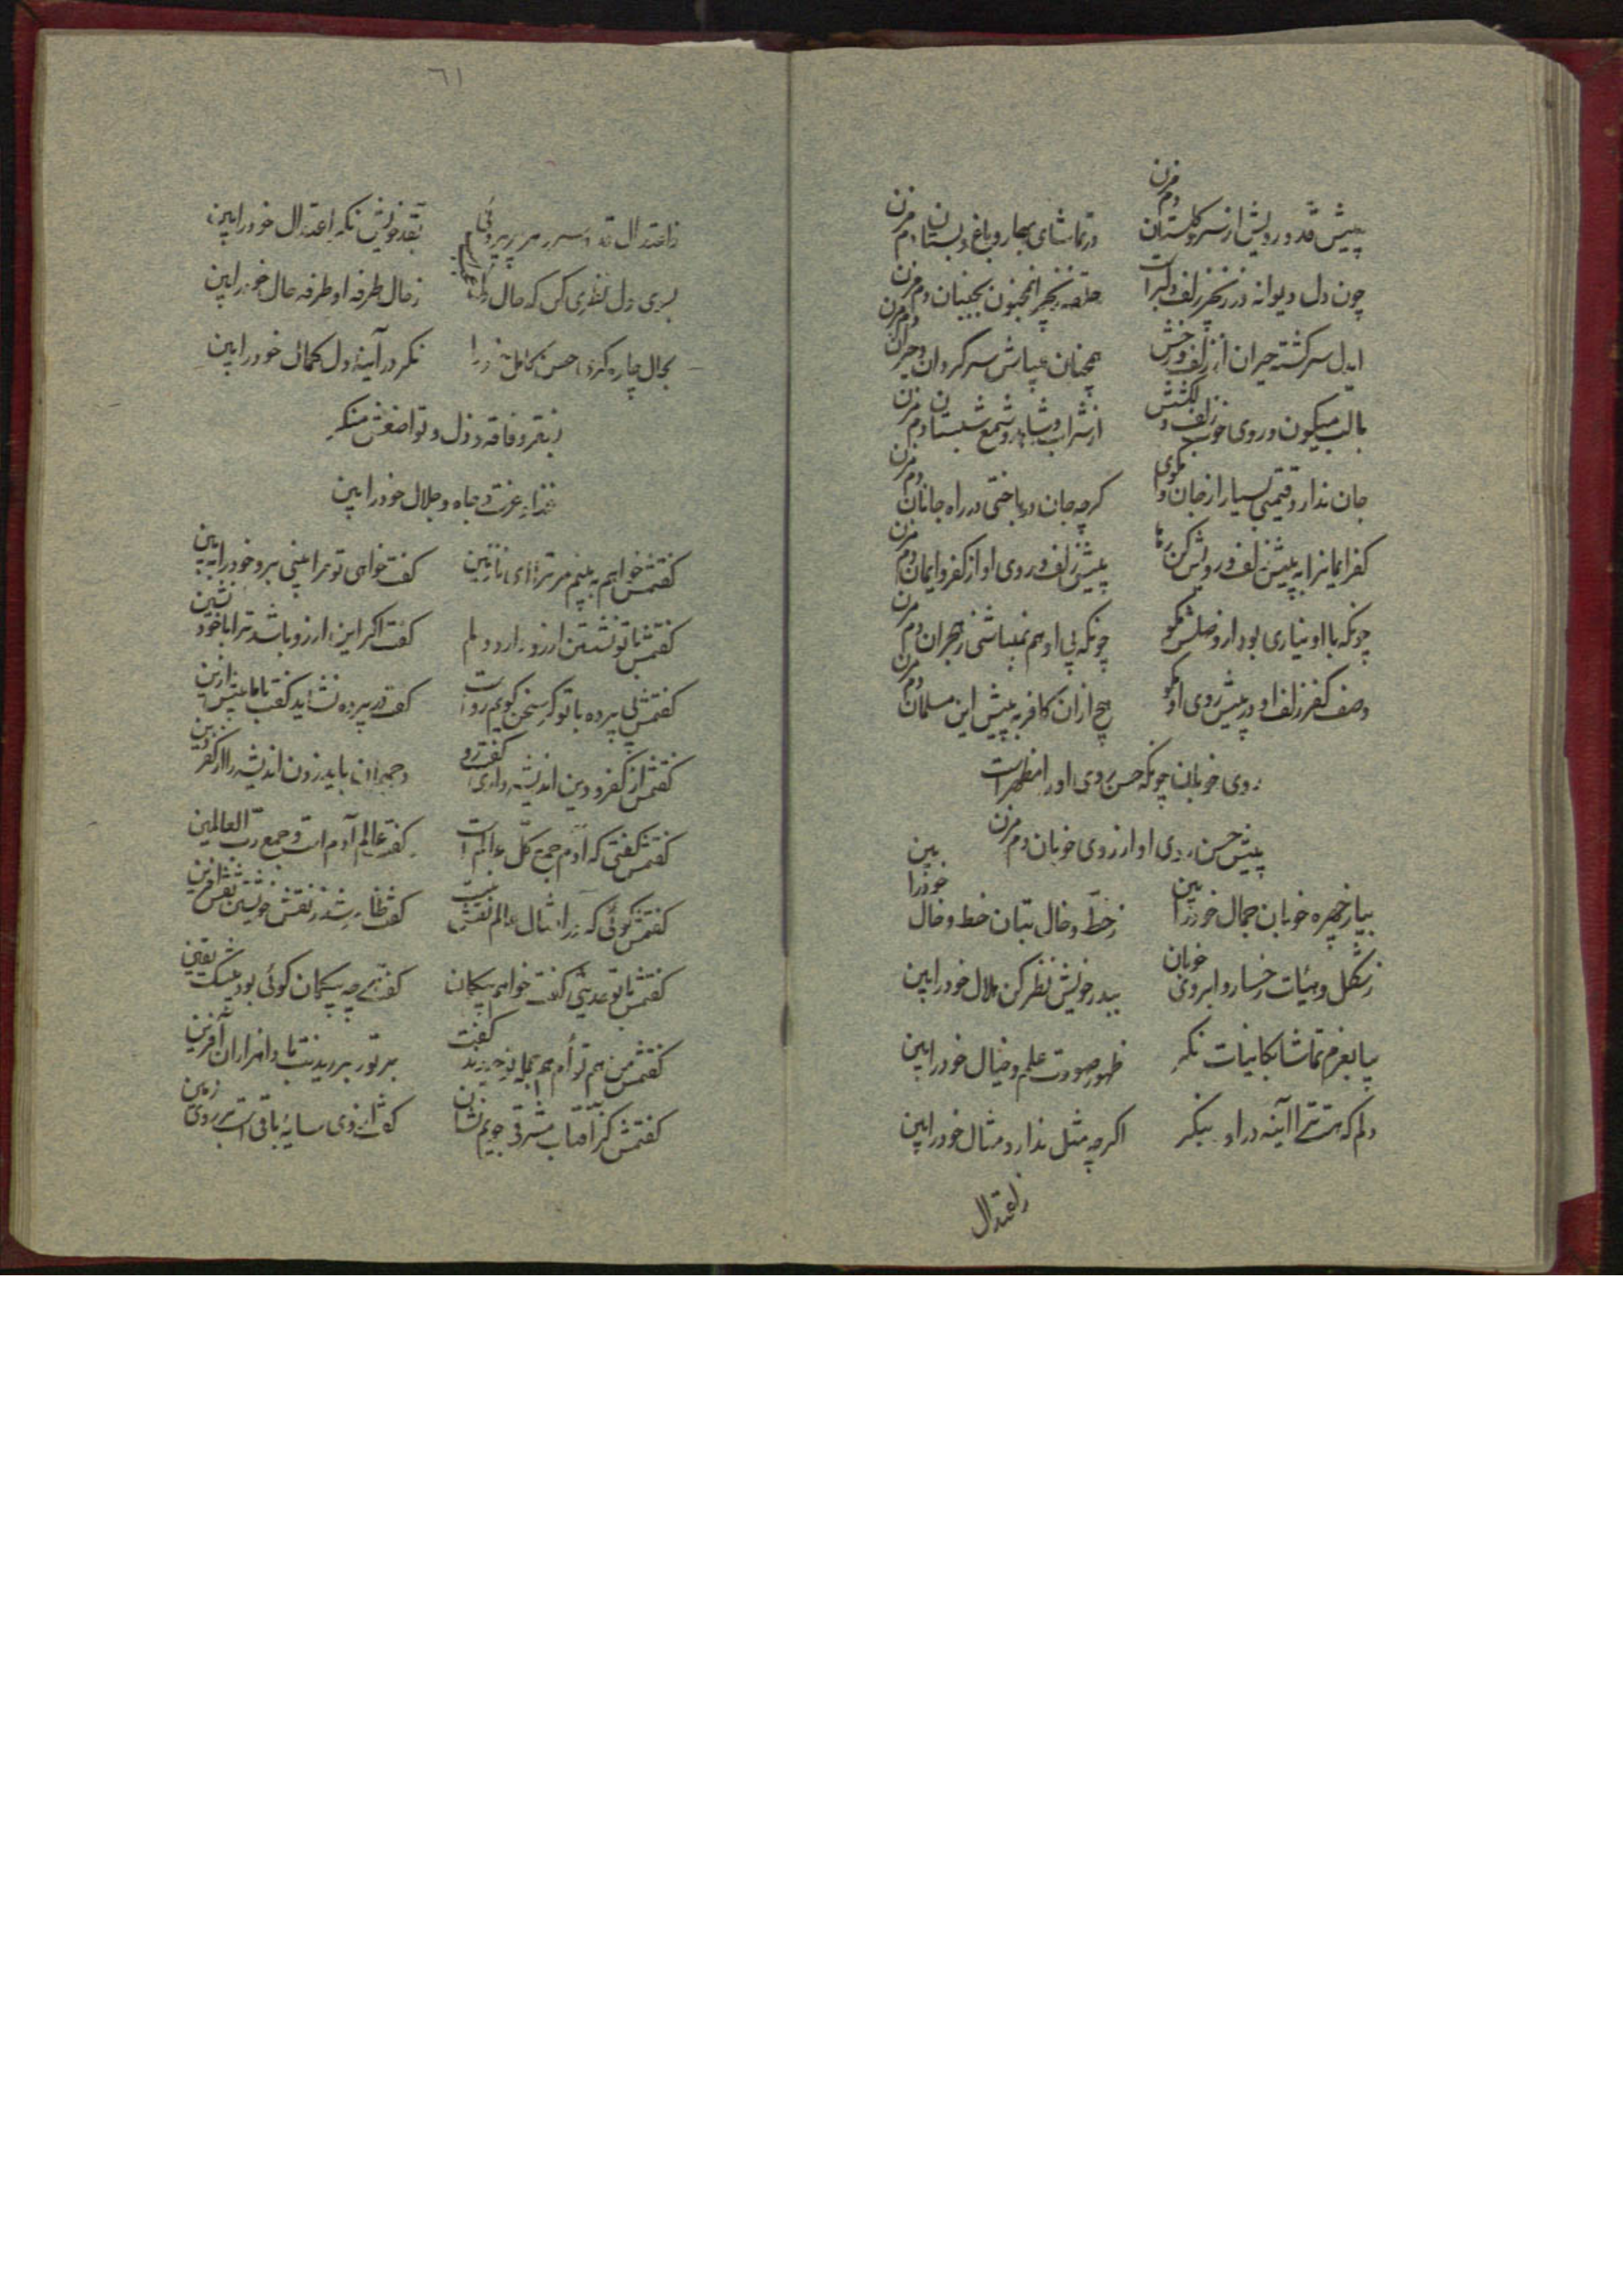 پیش قد و رویش از سرو گلستان دم مزن
در تماشای بهار و باغ و بستان دم مزن
چون دل دیوانه در زنجیر زلف دلبرست
حلقه زنجیر این مجنون بجنبان دم مزن
ایدل سرگشته حیران از زلف و رخش
همچنان میباش سرگردان و حیران دم مزن
با لب میگون و روی خوب و زلف دلکشش
از شراب و شاهد و شمع شبستان دم مزن
جان ندارد قیمتی بسیار از جان وا مگوی
گرچه جان در باختی در راه جانان دم مزن
کفر ایمانرا به پیش زلف و رویش کن رها
پیش زلف و روی او از کفر و ایمان دم مزن
چونکه با او نیاری بود از وصلش مگو
چونکه بی او هم نمیباشی ز هجران دم مزن
وصف کفر زلف او در پیش روی او مگو
هیچ از آن کافر به پیش این مسلمان دم مزن
روی خوبان چونکه حسن روی او را مظهرست
پیش حسن روی او از روی خوبان دم مزن
بیا ز چهره خوبان جمال خود را ببین
ز خط و خال بتان خط و خال خود را ببین
ز شکل و هیأت رخسار و ابروی خوبان
ببدر خویش نظر کن هلال خود را ببین
بیا بعزم تماشا بکاینات نگر
ظهور صورت علم و خیال خود را ببین
دلم که هست ترا آینه در او بنگر
اگرچه مثل نداری مثال خود را ببین
ز اعتدال
٦١
ز اعتدال قد
بقد خویش نگر اعتدال خود را ببین
بسوی دل نظری کن که حال دل
ز حال طرفه او طرفه حال خود را ببین
بحال چاره
حسن کامل خود را
نگر در آینه دل کمال خود را ببین
ز فقر و فاقه و ذل و تواضعش منگر
غنا و عزت و جاه و جلال خود را ببین
گفتمش خواهم به بینم مر ترا ای نازنین
گفت خواهی تو مرا بینی برو خود را ببین
گفتمش با تو نشستن آرزو دارد دلم
گفت اگر این آرزو باشد ترا با خود نشین
گفتمش بی پرده با تو گر سخن گویم رواست
گفت در پرده نشاید گفت با ما بیش ازین
گفتمش از کفر و دین اندیشه داری گفت رو
باید زدن اندیشه را از کفر و دین
گفتمش گفتی که آدم جمع کل عالم است
گفت عالم آدم است و جمع رب العالمین
گفتمش گوئی که را مثال عالم نقش بست
گفت ظاهر شد ز نقش خویشتن نقش آفرین
گفتمش با تو حدیثی گفت خواهم بیگمان
گفت هر چه بیگمان گوئی بود بیشک یقین
گفتمش من هم توام
گفت
بر تو و بر دیدنت بادا هزاران آفرین
گفتمش کز آفتاب مشرقی جویم نشان
گفت از وی سایهٔ باقی است بر روی زمین